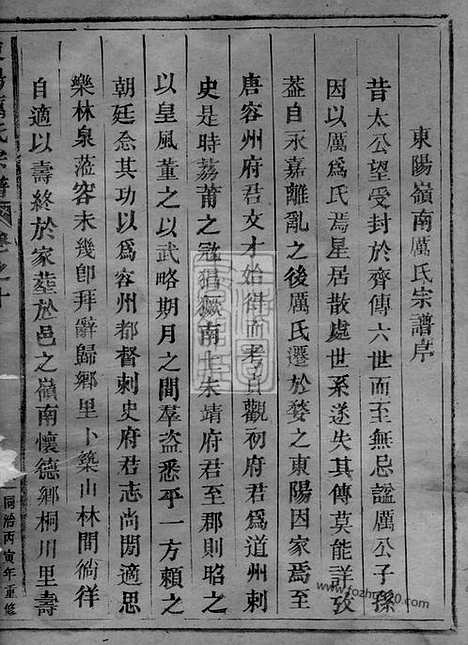 東陽嶺南厲氏宗譜序
昔太公望受封於齊傳六世而至無忌諡厲公子孫
因以厲爲氏焉星居散處世系遂失其傳莫能詳攷
葢自永嘉離亂之後厲氏遷於婺之東陽因家焉至
唐容州府君文才始得而考貞觀初府君爲道州刺
史是時荔莆之寇猖獗南土未靖府君至郡則昭之
以皇風董之以武略期月之間羣盗悉平一方賴之
朝廷念其功以爲容州都督刺史府君志尚閒適思
樂林泉蒞容未幾卽拜辭歸鄉里卜築山林間徜徉
自適以壽終於家葬於邑之嶺南懷德鄉桐川里壽
同治丙寅年重修
氏宗譜
www.fozhu920.com